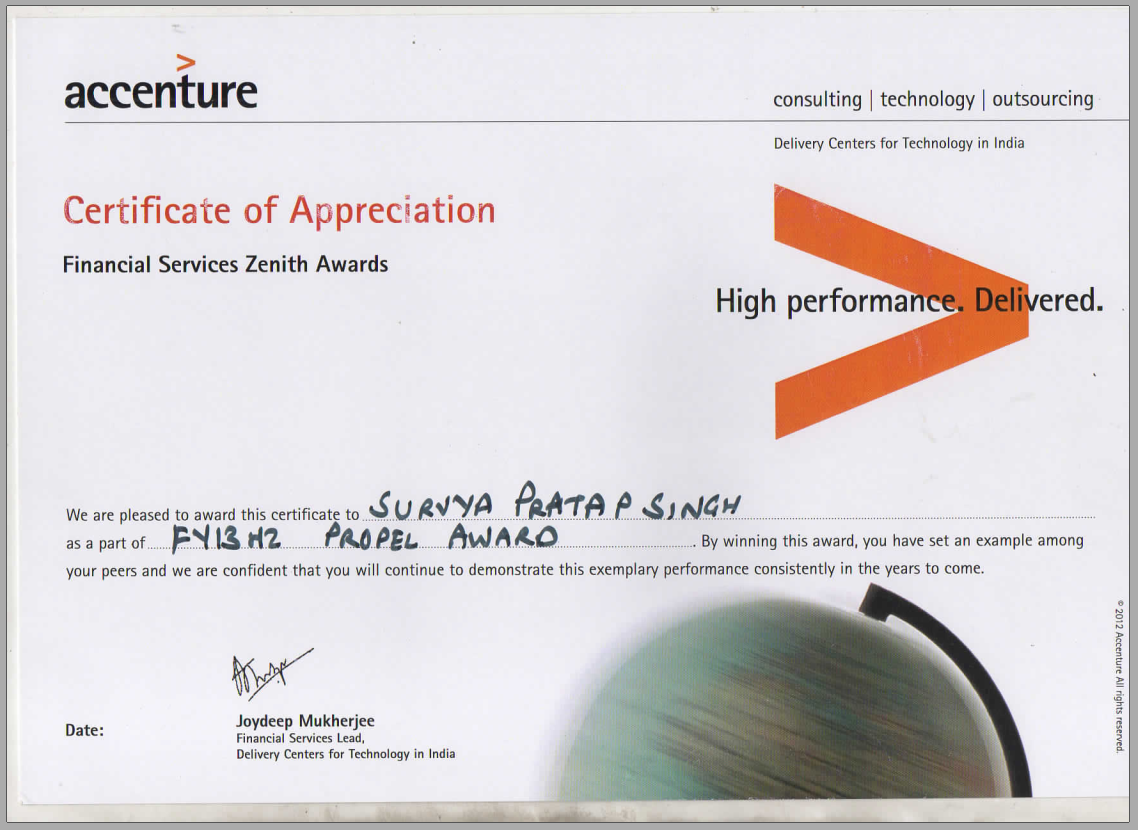 accenture
consulting | technology | outsourcing
Delivery Centers for Technology in India
Certificate of Appreciation
Financial Services Zenith Awards
High performance. Delivered.
We are pleased to award this certificate to SURVYA PRATAP SINGH
as a part of FY13 H2 PROPEL AWARD. By winning this award, you have set an example among
your peers and we are confident that you will continue to demonstrate this exemplary performance consistently in the years to come.
© 2012 Accenture All rights reserved.
Date:
Joydeep Mukherjee
Financial Services Lead,
Delivery Centers for Technology in India